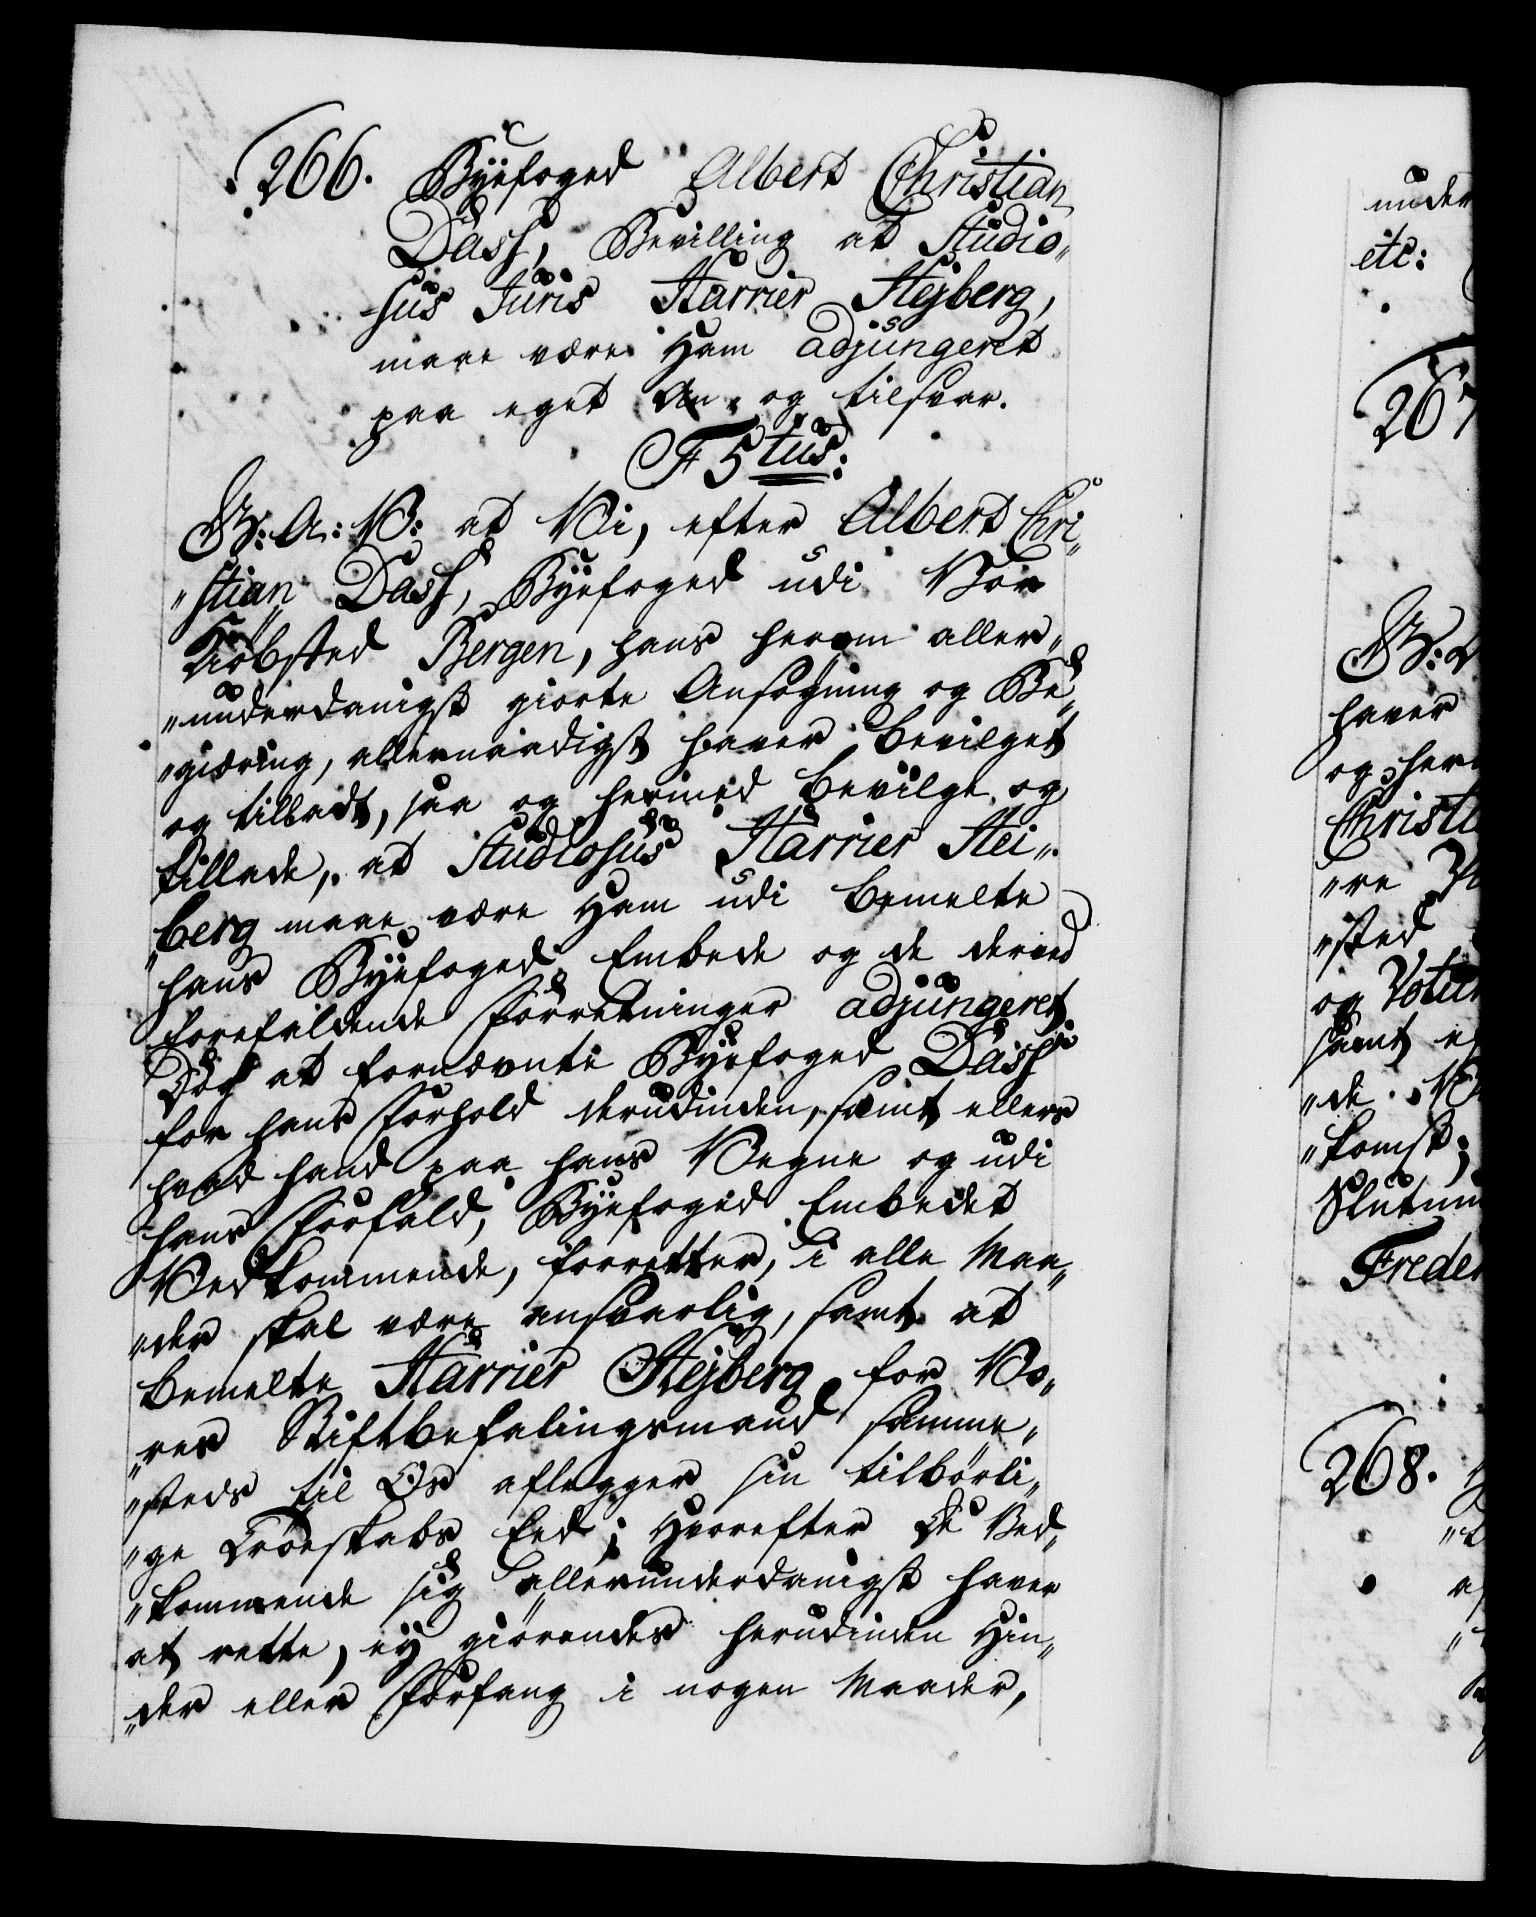 266. Byefoged Albert Christian
Dass, Bevilling at Studio„
sus Juris Harrier Hejberg,
maae være Ham adjungeret
paa eget An- og tilsvar.
F 5tus:
G: A: V: at Vi, efter Albert Chri„
„stian Dass, Byefoged udi Vor
Kiøbsted Bergen, hans herom aller„
„underdanigst giorte Ansøgning og Be„
„giæring, allernaadigst haver bevilget
og tilladt, saa og hermed bevilge og
tillade, at Studiosus Harrier Hei„
„berg maae være Ham udi bemelte
hans Byefoged Embede og de derved
forefaldende Forretninger adjungeret
Dog at fornævnte Byefoged Dass
for hans Forhold derudinden, samt ellers
hvad hand paa hans Vegne og udi
hans Forfald, Byefoged Embedet
Vedkommende, forretter, i alle Maa„
„der skal være ansvarlig, samt at
bemelte Harrier Hejberg for Vo„
„res Stiftbefalingsmand samme„
„steds til Os aflegger sin tilbørli„
„ge Troeskabs Eed; Hvorefter De Ved„
„kommende sig allerunderdanigst haver
at rette, ey giørendes herudinden Hin„
„der eller Forfang i nogen Maader,
under
etc:
267
G: A
haver
og her
Christi
„re
„sted
og Votum
samt
„de
„komst;
Slutum
Freder
268.